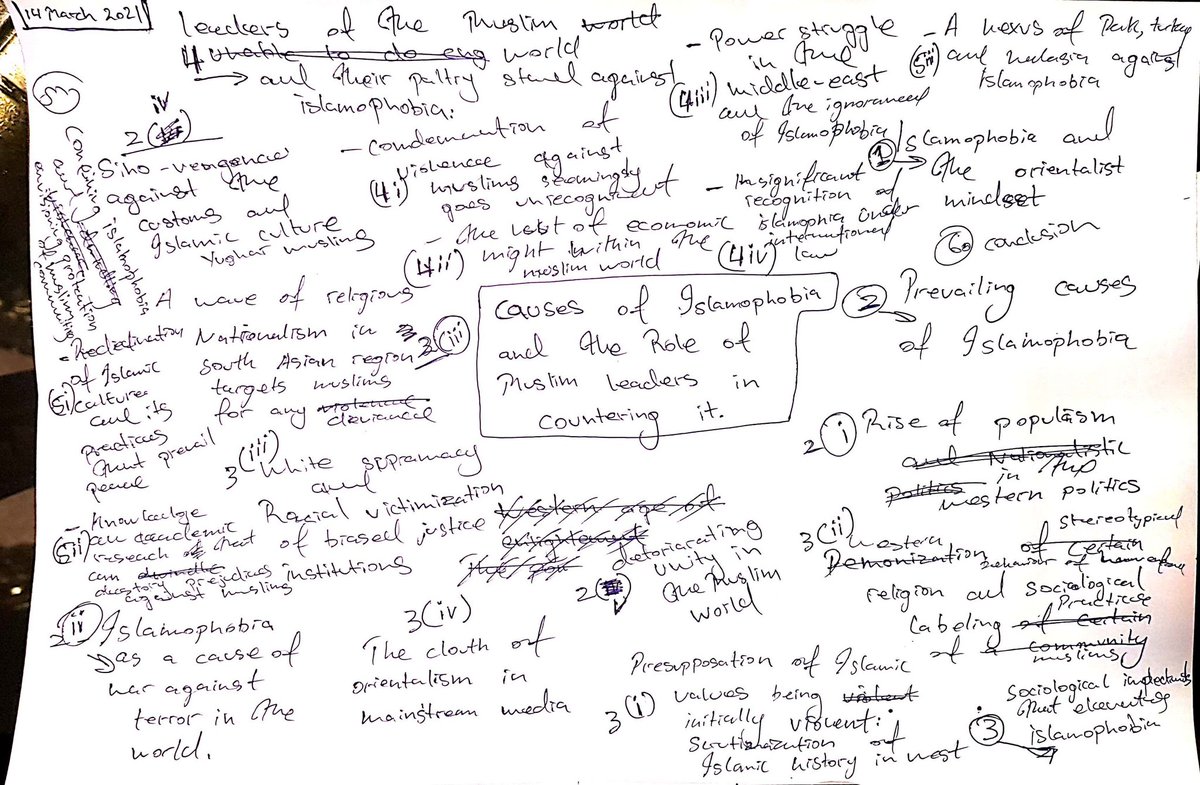 14 March 2021
Leaders of the Muslim world
4 unable to do eng world
and their paltry stand against
islamophobia.
- Power struggle
in the
4(iii) middle-east
and the ignorance
of Islamophobia
- A nexus of Pak, turkey
5(iii) and malasia against
Islamophobia
5
Confining islamophobia
and
envisioning protection
of muslim
communities
iv
2
Sino-vengeance
against the
customs and
Islamic culture
Yughar muslims
- Condemnation of
violence against
4(i) muslims seemingly
goes unrecognized
- the lost of economic
4(ii) might within the
muslim world
- Insignificant
recognition of
islamophia under
international
4(iv) law
1 Islamophobia and
the orientalist
mindset
6 conclusion
A wave of religious
Nationalism in
3(iii)
South Asian region
targets muslims
for any violence
deviance
- Reclaimation
of Islamic
5(i) culture
and its
practices
that prevail
peace
Causes of Islamophobia
and the Role of
Muslim leaders in
countering it.
2 Prevailing causes
of Islamophobia
2(i) Rise of populism
and Nationalistic
in the
Politics western politics
3(iii)
White supremacy
and
Racial victimization
of biased justice
institutions
- Knowledge
5(ii) an academic
reseach that
can
prejudices
against muslims
Western age of
enlightement
deteriorating
unity in
the Muslim
world
2
v
3(ii) Western
stereotypical
Demonization of certain
behaviour of
religion and sociological
Practices
Labeling of certain
of a community
muslims
2(ii) Islamophobia
as a cause of
war against
terror in the
world.
3(iv)
The clout of
orientalism in
mainstream media
Presupposation of Islamic
3(i) values being violent
initially violent:
of
Islamic history in west
Sociological
that elevates
3 islamophobia